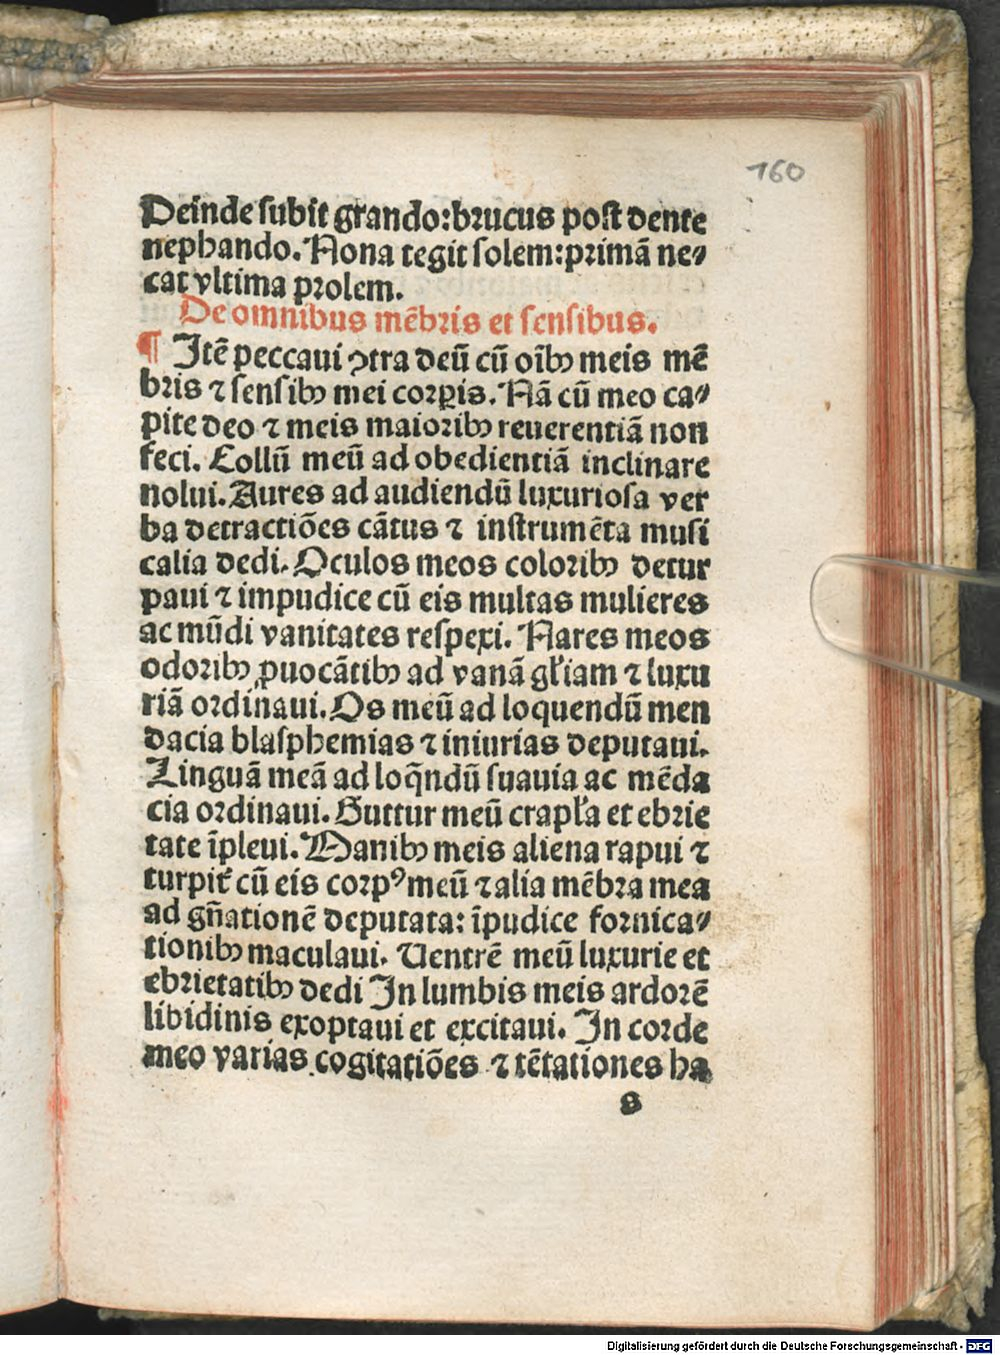 160
Deinde subit grando:brucus post dente
nephando. Nona tegit solem:primā ne⸗
cat vltima prolem.
De omnibus mēbris et sensibus.
¶ Itē peccaui ꝯtra deū cū oībꝫ meis mē
bris ⁊ sensibꝫ mei corꝑis. Nā cū meo ca⸗
pite deo ⁊ meis maioribꝫ reuerentiā non
feci. Collū meū ad obedientiā inclinare
nolui. Aures ad audiendū luxuriosa ver
ba detractiōes cātus ⁊ instrumēta musi
calia dedi. Oculos meos coloribꝫ detur
paui ⁊ impudice cū eis multas mulieres
ac mūdi vanitates respexi. Nares meos
odoribꝫ ꝓuocātibꝫ ad vanā gl̄iam ⁊ luxu
riā ordinaui. Os meū ad loquendū men
dacia blasphemias ⁊ iniurias deputaui.
Linguā meā ad loq̄ndū suauia ac mēda
cia ordinaui. Guttur meū crapl̄a et ebrie
tate īpleui. Manibꝫ meis aliena rapui ⁊
turpit̄ cū eis corpꝰ meū ⁊ alia mēbra mea
ad gn̄ationē deputata: īpudice fornica⸗
tionibꝫ maculaui. Uentrē meū luxurie et
ebrietatibꝫ dedi In lumbis meis ardorē
libidinis exoptaui et excitaui. In corde
meo varias cogitatiōes ⁊ tētationes ha
s
Digitalisierung gefördert durch die Deutsche Forschungsgemeinschaft - DFG